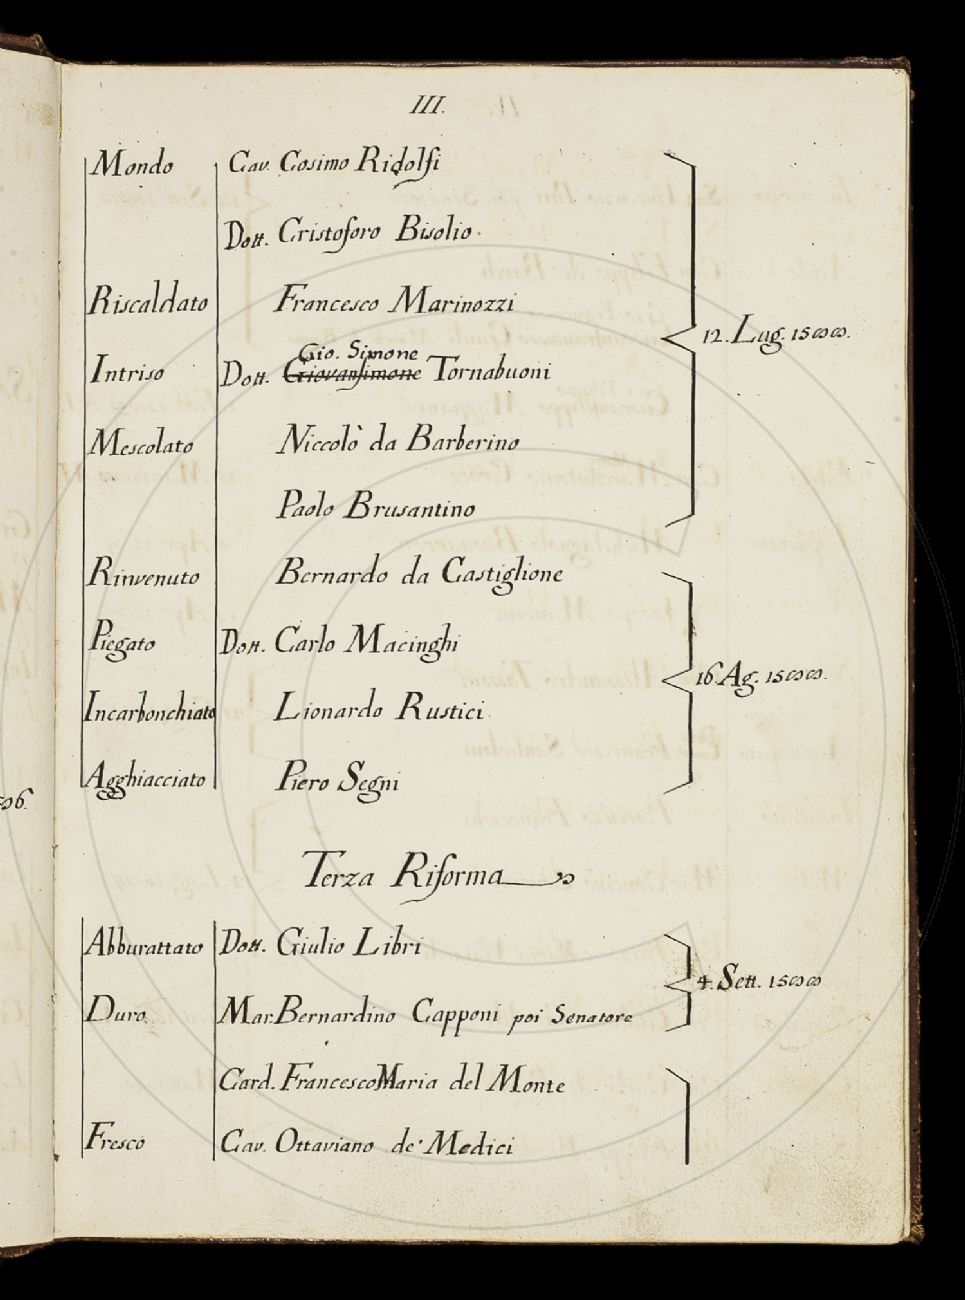 III.
Mondo Cav. Cosimo Ridolfi
Dott. Cristoforo Bisolio.
Riscaldato Francesco Marinozzi
12. Lug. 1588.
Gio. Simone
Intriso Dott. Giovansimone Tornabuoni
Mescolato Niccolò da Barberino
Paolo Brusantino
Rinvenuto Bernardo da Castiglione
Piegato Dott. Carlo Macinghi
16. Ag. 1588.
Incarbonchiato Lionardo Rustici
Agghiacciato Piero Segni
86.
Terza Riforma
Abburattato Dott. Giulio Libri
4. Sett. 1588
Duro Mar. Bernardino Capponi poi Senatore
Card. Francesco Maria del Monte
Fresco Cav. Ottaviano de' Medici